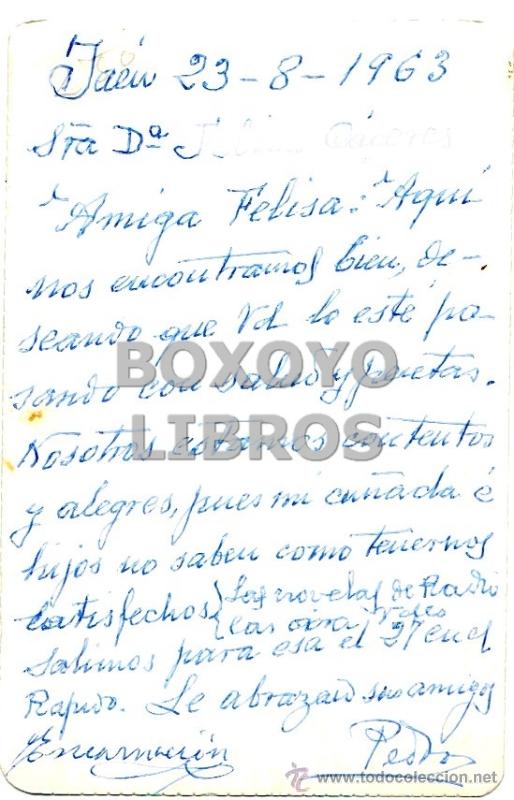 Jaén 23-8-1963
Sra Dª Felisa Cáceres
Amiga Felisa: Aquí
nos encontramos bien, de-
seando que Vd lo esté pa-
sando con salud y
BOXOYO
LIBROS
Nosotros estamos contentos
y alegres, pues mi cuñada é
hijos no saben como tenernos
satisfechos (Las novelas de Radio
las oirá Vd
Salimos para esa el 27 en el
Rapido. Le abrazan sus amigos
Encarnación Pedro
www.todocoleccion.net